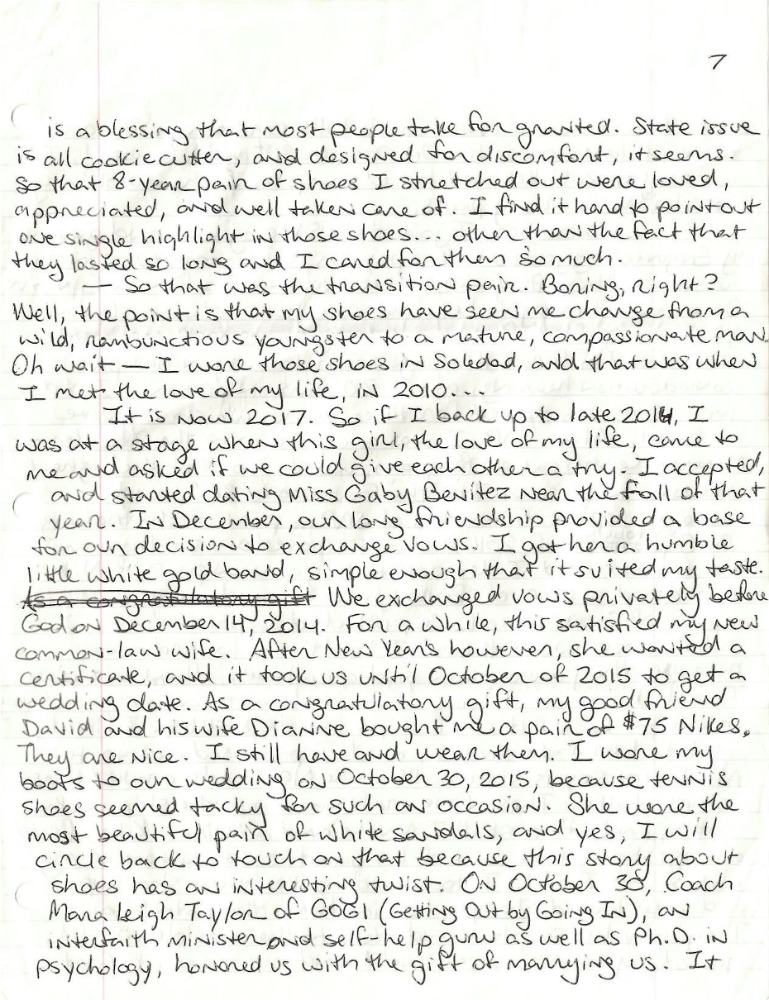 7
is a blessing that most people take for granted. State issue
is all cookie cutter, and designed for discomfort, it seems.
So that 8-year pair of shoes I stretched out were loved,
appreciated, and well taken care of. I find it hard to point out
one single highlight in those shoes... other than the fact that
they lasted so long and I cared for them so much.
— So that was the transition pair. Boring, right?
Well, the point is that my shoes have seen me change from a
wild, rambunctious youngster to a mature, compassionate man.
Oh wait — I wore those shoes in Soledad, and that was when
I met the love of my life, in 2010...
It is now 2017. So if I back up to late 2014, I
was at a stage when this girl, the love of my life, came to
me and asked if we could give each other a try. I accepted,
and started dating Miss Gaby Benitez near the fall of that
year. In December, our long friendship provided a base
for our decision to exchange vows. I got her a humble
little white gold band, simple enough that it suited my taste.
As a congratulatory gift We exchanged vows privately before
God on December 14, 2014. For a while, this satisfied my new
common-law wife. After New Years however, she wanted a
certificate, and it took us until October of 2015 to get a
wedding date. As a congratulatory gift, my good friend
David and his wife Dianne bought me a pair of $75 Nikes.
They are nice. I still have and wear them. I wore my
boots to our wedding on October 30, 2015, because tennis
shoes seemed tacky for such an occasion. She wore the
most beautiful pair of white sandals, and yes, I will
circle back to touch on that because this story about
shoes has an interesting twist. On October 30, Coach
Mara Leigh Taylor of GOGI (Getting Out by Going In), an
interfaith minister and self-help guru as well as Ph.D. in
psychology, honored us with the gift of marrying us. It